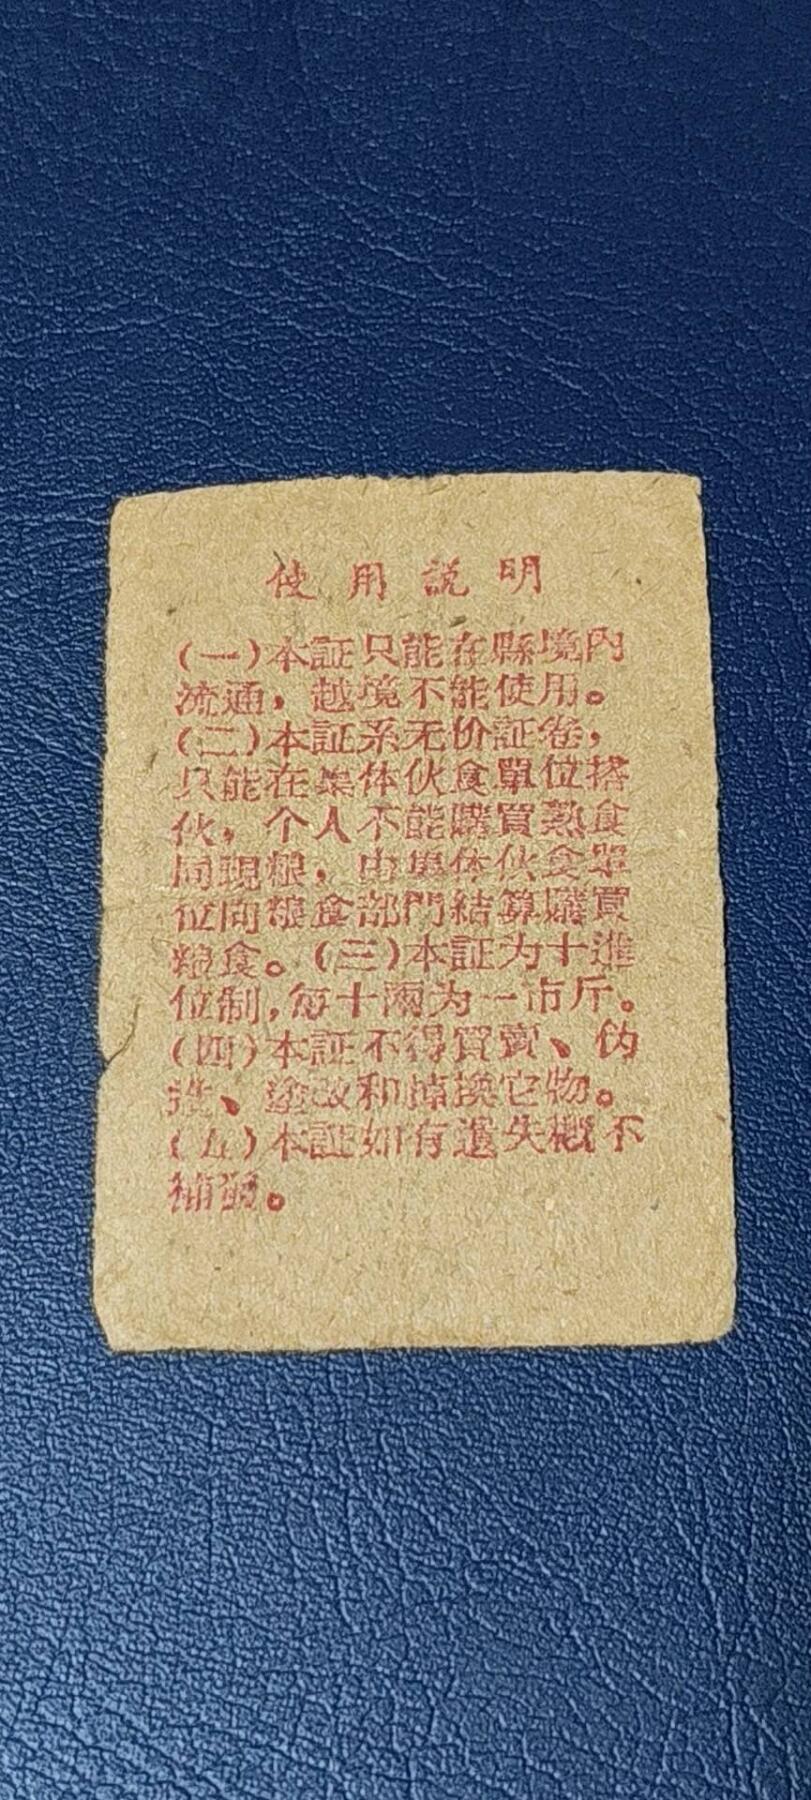 使用説明
(一)本証只能在縣境內
流通，越境不能使用。
(二)本証系无价証卷，
只能在集体伙食單位搭
伙，个人不能購買熟食
同現粮，由集体伙食單
位向粮食部門結算購買
粮食。(三)本証为十進
位制,每十兩为一市斤。
(四)本証不得買賣、伪
造、塗改和掉換它物。
(五)本証如有遺失概不
補發。